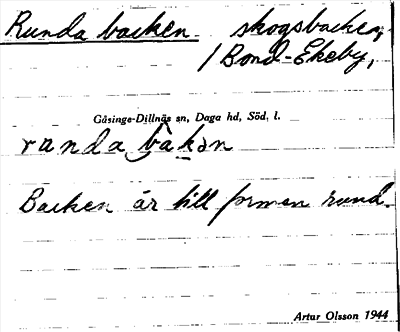 Runda backen skogsbacken,
/ Bond-Ekeby,
Gåsinge-Dillnäs sn, Daga hd, Söd. l.
runda bàkən
Backen är till formen rund.
Artur Olsson 1944